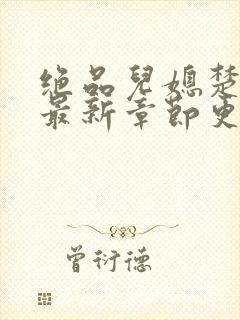 绝品儿媳楚
最新章节更
曾衍德